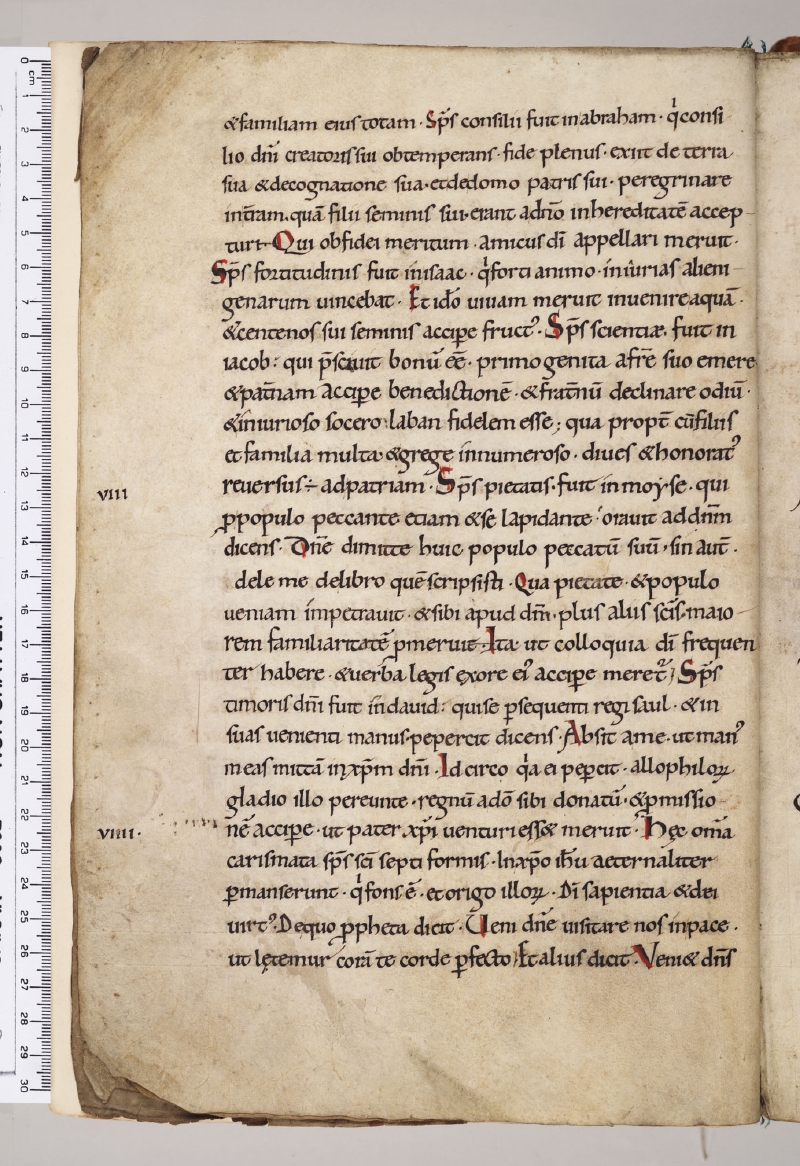 &familiam eius totam · Sp̄s consilii fuit inabraham · qͥ consi
lio dn̄i creatoris sui obtemperans · fide plenus · exiit de terra
sua &decognatione sua · etdedomo patris sui · peregrinare
int̄ram · quā filii seminis sui · erant adn̄o inhereditatē accep
turi · Qui obfidei meritum · amicus dī appellari meruit ·
Sp̄s fortitudinis fuit inisaac · qͥ forti animo · iniurias alieni
genarum uincebat · Et idō uiuam meruit inuenireaquā ·
&centenos sui seminis accipe fruct᾿ · Sp̄s scientiæ · fuit in
iacob : qui p̄sciuit bonū ēē · primogenita afr̄e suo emere
&pat̄nam accipe benedictionē · &frat̄nū declinare odiū ·
&iniurioso socero laban fidelem esse ; qua propt̄ cū filiis
et familia multa &grege innumeroso · diues &honorat᾿
VIII
reuersus ÷ adpatriam · Sp̄s pietatis · fuit in moy·se · qui
ꝓpopulo peccante etiam &se lapidante · orauit addn̄m
dicens · Dn̄e dimitte huic populo peccatū suū · sin aut̄ ·
dele me delibro quē scripsisti · Qua pietate · &populo
ueniam impetrauit · &sibi apud dn̄i · plus aliis sc̄is · maio
rem familiaritatē ꝓmeruit · Ita ut colloquia dī frequen
ter habere · &uerba legis ex ore ei᾿ accipe meret᾿ ; Sp̄s
timoris dn̄i fuit indauid : qui se ꝑsequenti regi saul · &in
suas uenienti manus · pepercit dicens · Absit ame · ut man᾿
meas mittā inxp̄m dn̄i · Id circo qͣa ei peꝑcit · allophiloꝝ
gladio illo pereunte · regnū adō sibi donatū · &ꝓmissio
VIIII ·
nē accipe · ut pater xp̄i uenturi ess& meruit · Hęc om̄a
carismata sp̄s sc̄i septi formis · Inxp̄o ih̄u aeternaliter
ꝑmanserunt · qͥ fons ē · et origo illoꝝ · Dī sapientia &dei
uirt᾿ · Dequo ꝓpheta dicit · Ueni dn̄e uisitare nos inpace ·
ut lętemur corā te corde ꝑfecto ; Et alius dicit · Veni& dn̄s